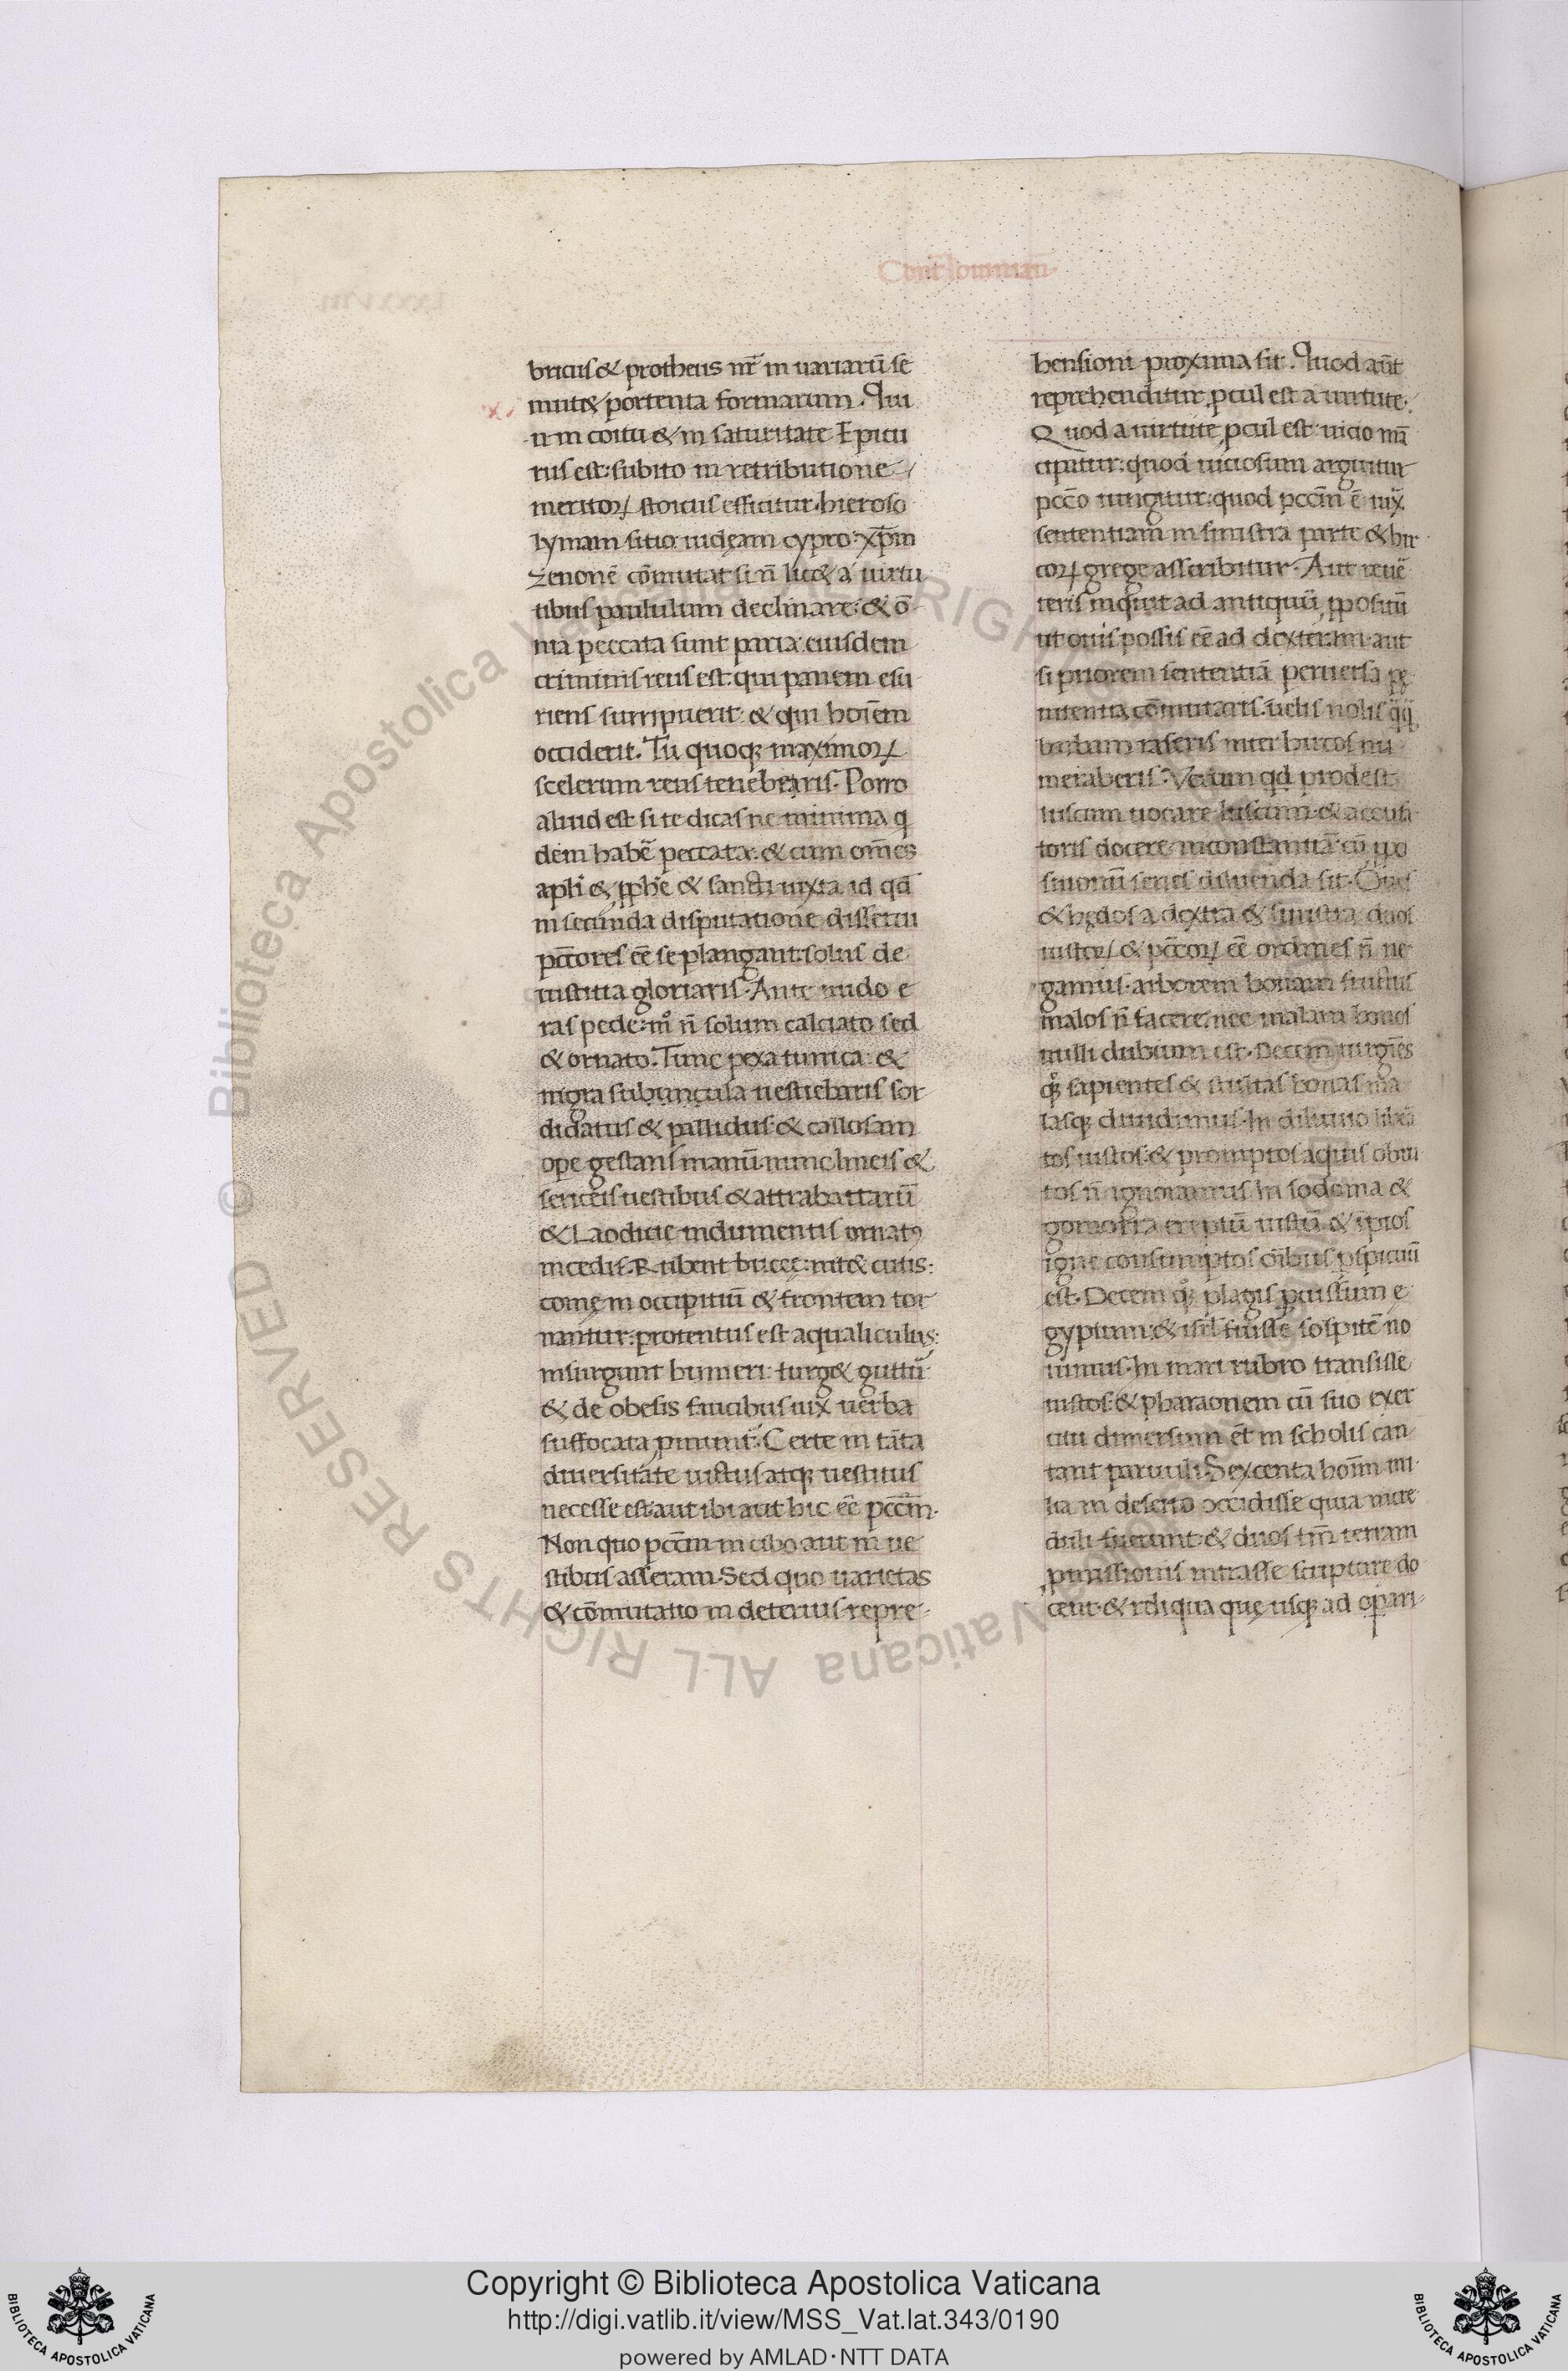 Cont͂ Iouinian̄
bricus & protheus nr̄ in uariarū se
mutet portenta formarum. Qui
.n̄ in coitu & in saturitate Epicu
rus est: subito in retributione
meritoꝝ stoicus efficitur. hieroso
lymam sitio: iudęam cypro: xp̄m
zenonē cōmutat. si n̄ licet a uirtu
tibus paululum declinare: & ō
nia peccata sunt paria: eiusdem
criminis reus est: qui panem esu
riens surripuerit: & qui hoīem
occiderit. Tu quoqꝫ maximoꝝ
scelerum reus teneberis. Porro
aliud est si te dicas ne minima q
dem habē peccata: & cum om̄es
apl̄i & ꝓph̄e & sancti iuxta id qd̄
in secunda disputatione disserui
pccores eē se plangant: solus de
iustitia gloriaris. Ante nudo e
ras pede: mͦ n̄ solum calciato sed
& ornato. Tunc pexa tunica: &
nigra subuncula uestiebaris sor
didatus & pallidus: & callosam
ope gestans manū. nunc lineis &
sericeis uestibus & attrabattarū
& Laodicie indumentis ornatꝰ
incedis. Rubent bucęę: nitet cutis:
comę in occipitiū & frontem tor
nantur: protentus est aqualiculus:
insurgunt humeri: turget guttur̄
& de obesis faucibus uix uerba
suffocata ꝓmunt̄. Certe in tāta
diuersitate uictus atqꝫ uestitus
necesse est: aut ibi aut hic eē pcc̄m.
Non quo pcc̄m in cibo aut in ue
stibus asseram. Sed quo uarietas
& cōmutatio in deterius repre-
hensioni proxima sit. Quod aūt
reprehenditur, ꝓcul est a uirtute.
Quod a uirtute ꝓcul est: uicio mā
cipatur: quod uiciosum arguitur
pccō iungitur: quod pcc̄m ē iux̄
sententiam in sinistra parte & hir
coꝝ grege asscribitur. Aut reuē
teris inquit ad antiquū ꝓpositū
ut ouis possis eē ad dexteram: aut
si priorem sententiā peruersa pę
nitentia cōmutaris. uelis nolis qͣqͣ
barbam raseris inter hircos nu
meraberis. Verum qd prodest
luscum uocare luscum: & accusa
toris docere inconstantiā: cū ꝓpo
sitionū series diluenda sit. Oues
& hędos a dextra & sinistra: duos
iustoꝝ & pccōꝝ eē ordines n̄ ne
gamus. arborem bonam fructus
malos n̄ facere: nec malam bonos
nulli dubium est. Decem uirgīes
qͦꝫ sapientes & stultas bonas ma
lasqꝫ diuidimus. In diluuio libā
tos iustos: & promptos aquis obru
tos n̄ ignoramus. In sodoma &
gomorra ereptū iustū & īpios
igne consumptos om̄ibus ꝑspicuū
est. Decem qͦꝫ plagis ꝑcussum ę
gyptum: & isrl̄ fuisse sospitē no
uimus. In mari rubro transisse
iustos: & pharaonem cū suo exer
citu dimersum ēt in scholis can
tant paruuli. Sexcenta hoīm mi
lia in deserto occidisse quia incre
duli fuerunt: & duos tm̄ terram
ꝓmissionis intrasse scripture do
cent: & reliqua quę usqꝫ ad opari-
Copyright © Biblioteca Apostolica Vaticana
http://digi.vatlib.it/view/MSS_Vat.lat.343/0190
powered by AMLAD·NTT DATA